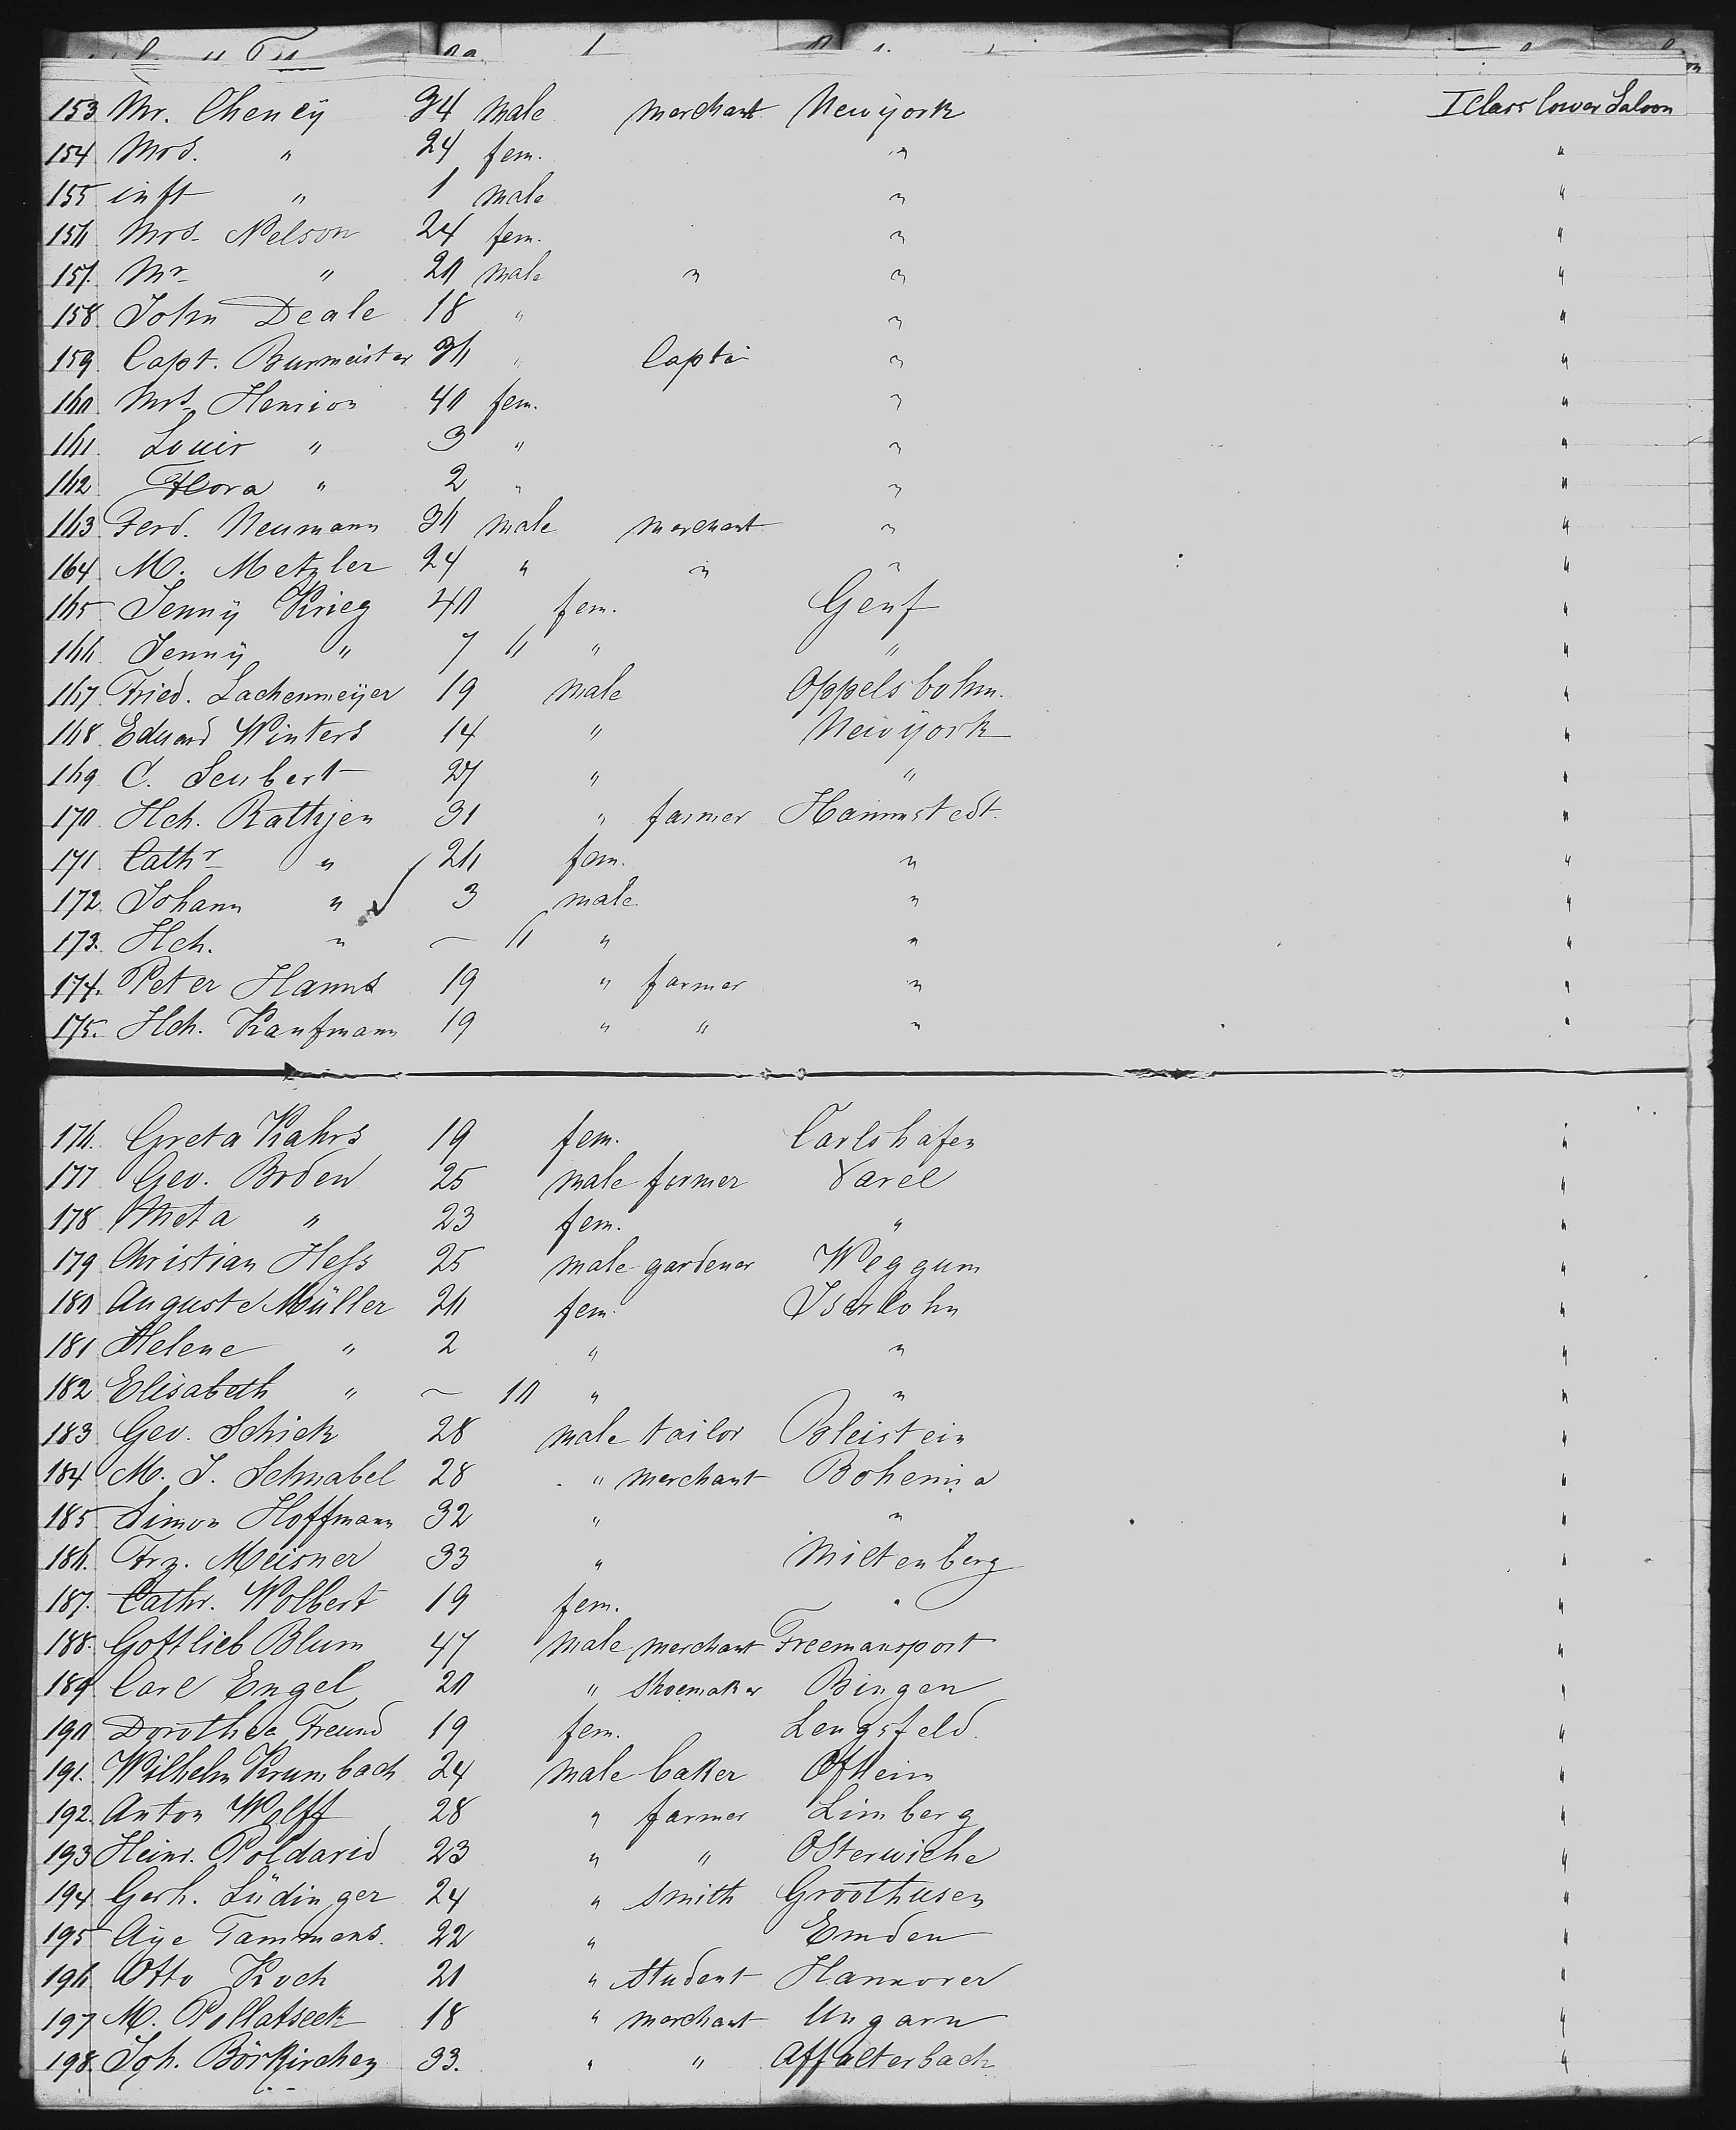 153 Mr. Cheney 34 male merchant Newyork I Class lower Saloon
154 Mrs. " 24 fem. " "
155 inft " 1 male " "
156 Mrs. Nelson 24 fem. " "
157. Mr " 20 male " " "
158. John Deale 18 " " "
159. Capt. Burmeister 36 " Captn " "
160 Mrs. Henrion 40 fem. " "
161. Louis " 3 " " "
162 Flora " 2 " " "
163 Ferd. Neumann 36 male merchant " "
164 M. Metzler 24 " " " "
165 Jenny Krieg 40 fem. Genf "
166 Jenny " 7 6 " " "
167 Fried. Lachenmeijer 19 male Oppelsbohm. "
168. Eduard Winters 14 " Newyork "
169 C. Seubert 27 " " "
170. Hch. Rathjen 31 " farmer Hammstedt. "
171. Cathr " 26 fem. " "
172. Johann " 3 male. " "
173. Hch. " – 6 " " "
174. Peter Hamms 19 " farmer " "
175. Hch. Kaufmann 19 " " " "
176. Greta Kahrs 19 fem. Carlshafen "
177 Geo. Broen 25 male farmer Varel "
178 Meta " 23 fem. " "
179 Christian Hess 25 male gardener Weggum "
180 Auguste Müller 26 fem. Iserlohn "
181 Helene " 2 " " "
182 Elisabeth " – 10 " " "
183 Geo. Schick 28 male tailor Bleistein "
184 M. J. Schnabel 28 " merchant Bohemia "
185 Simon Hoffmann 32 " " "
186. Frz. Meisner 33 " Miltenberg "
187. Cathr. Wolbert 19 fem. " "
188. Gottlieb Blum 47 male merchant Freemansport "
189 Carl Engel 20 " Shoemaker Bingen "
190 Dorothea Freund 19 fem. Lengsfeld. "
191. Wilhelm Krumbach 24 male baker Ostheim "
192. Anton Wolff 28 " farmer Limberg "
193 Heinr. Poldarid 23 " " Osterwiche "
194. Gerh. Lüdinger 24 " Smith Groothusen "
195 Aye Tammens. 22 " Emden "
196 Otto Koch 21 " Student Hannover "
197 M. Pollatseck 18 " merchant Ungarn "
198. Joh. Börkircher 33. " " Affalterbach "